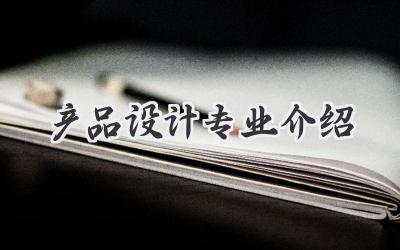 产品设计专业介绍